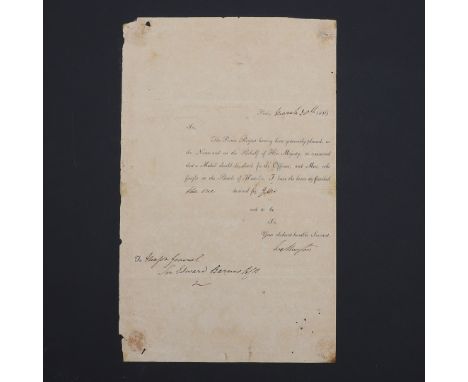 Sir,
The Prince Regent having been graciously pleased, in
the Name and on the Behalf of His Majesty, to command
that a Medal should be struck for the Officers and Men who
fought in the Battle of Waterloo, I have the honor to
the one
and to be
Sir,
Your obedient humble Servant,
To Major General
Sir Edward Barnes, KCB